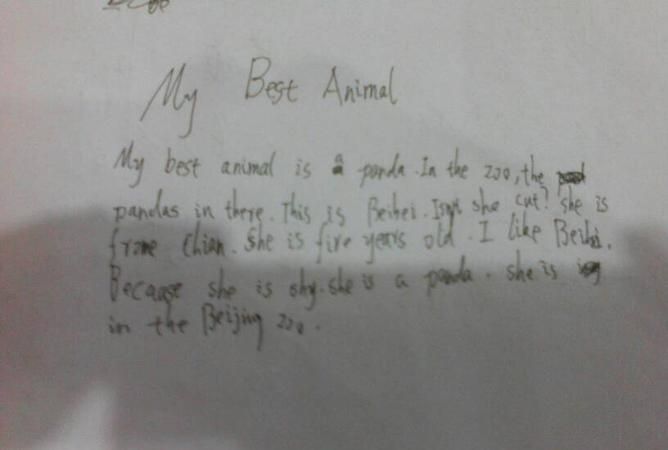 My Best Animal
My best animal is a panda. In the zoo, the
pandas in there. This is Beibei. Isn't she cut? she is
frome Chian. She is five years old. I like Beibei.
Because she is shy. she is a panda. she is
in the Beijing zoo.